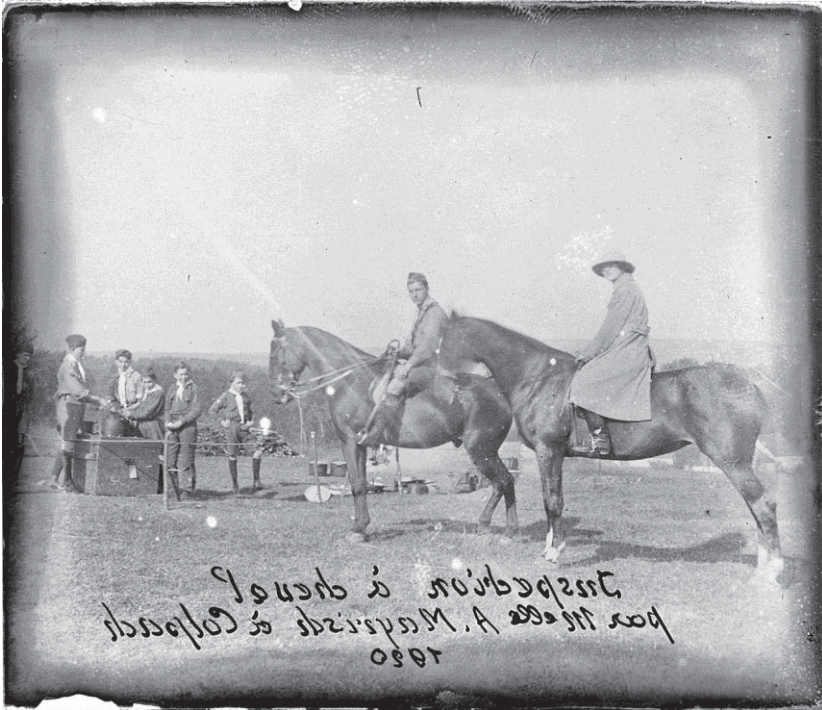 Inspection à cheval
par Melle A. Mayrisch à Colpach
1920